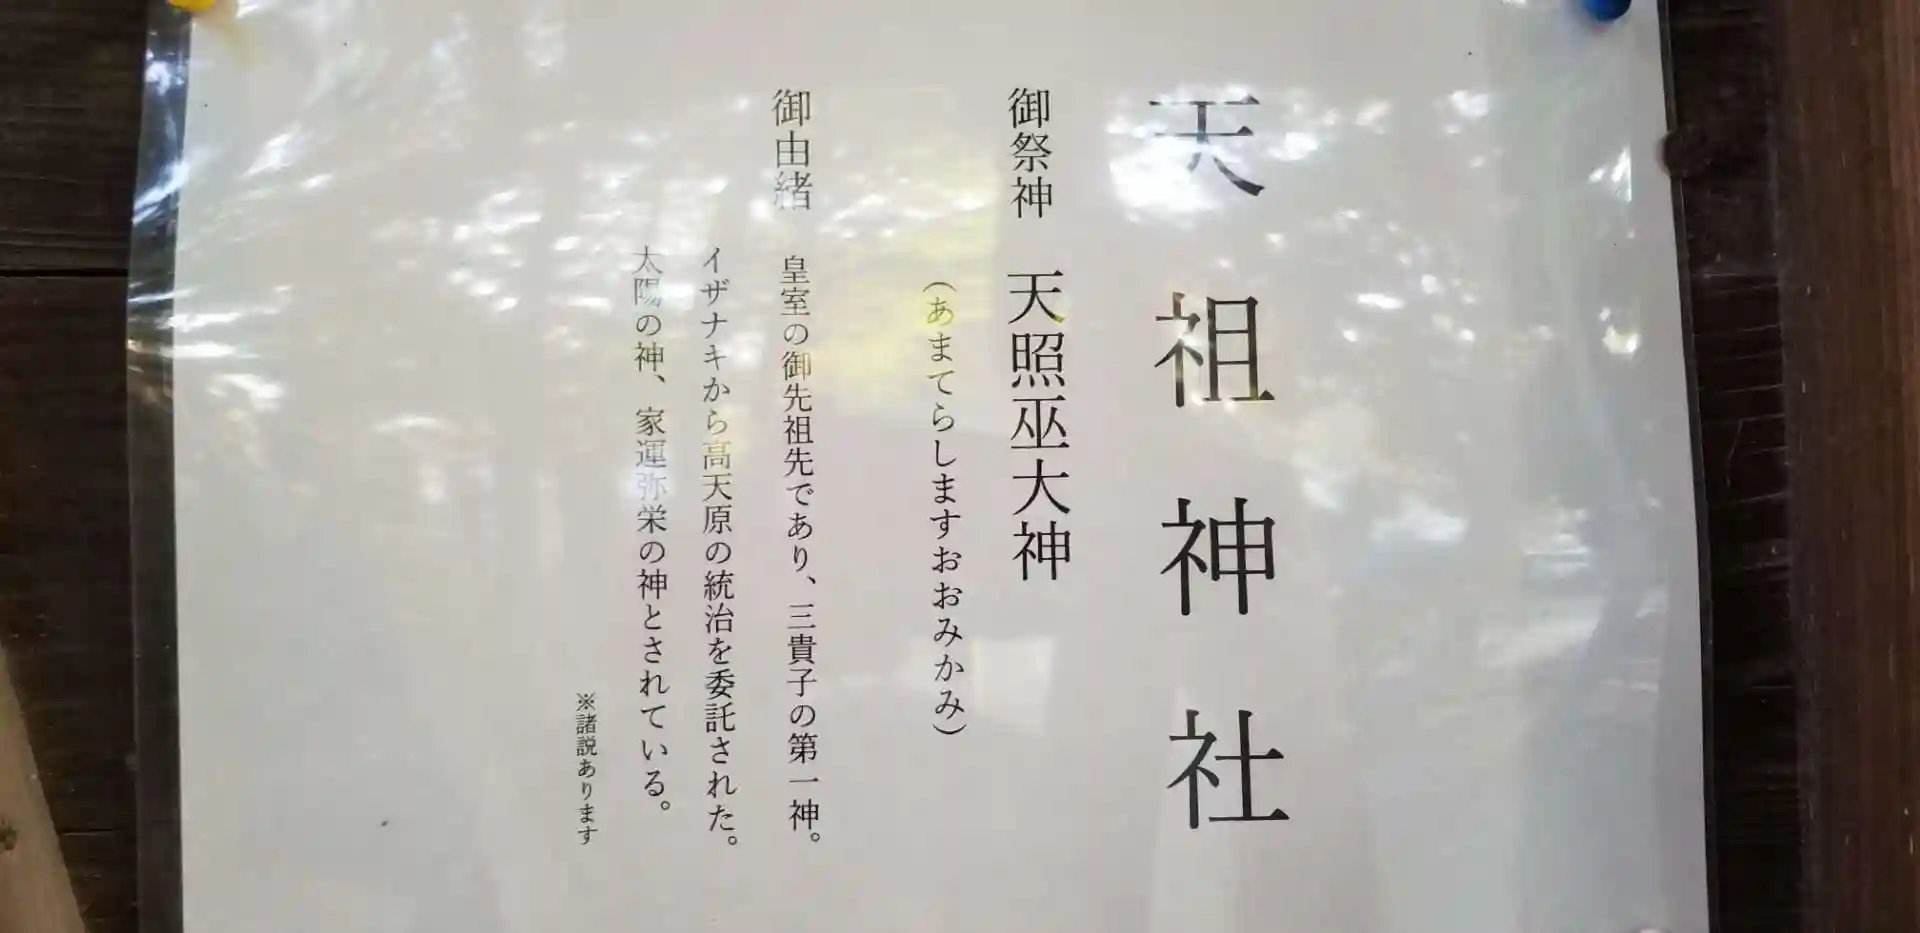 天祖神社
御祭神 天照巫大神
（あまてらしますおおみかみ）
御由緒 皇室の御先祖先であり、三貴子の第一神。
イザナキから高天原の統治を委託された。
太陽の神、家運弥栄の神とされている。
※諸説あります